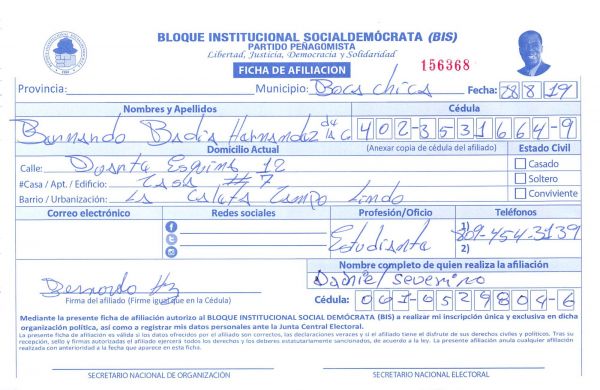 BLOQUE INSTITUCIONAL SOCIALDEMÓCRATA (BIS)
PARTIDO PEÑAGOMISTA
Libertad, Justicia, Democracia y Solidaridad
FICHA DE AFILIACION
156368
Provincia: Municipio: Boca chica Fecha: 28 8 19
Nombres y Apellidos Cédula
Bernardo Badia Hernandez de la C 402-3531664-9
Domicilio Actual (Anexar copia de cédula del afiliado) Estado Civil
Calle: Duarte Esquina 12 Casado
#Casa / Apt. / Edificio: Casa #7 Soltero
Barrio / Urbanización: La Caleta Campo Lindo Conviviente
Correo electrónico Redes sociales Profesión/Oficio Teléfonos
Estudiante 1) 809-454-3139
2)
Nombre completo de quien realiza la afiliación
Bernardo Hz Daniel Severino
Firma del afiliado (Firme igual que en la Cédula) Cédula: 001-0529804-6
Mediante la presente ficha de afiliación autorizo al BLOQUE INSTITUCIONAL SOCIAL DEMÓCRATA (BIS) a realizar mi inscripción única y exclusiva en dicha
organización política, así como a registrar mis datos personales ante la Junta Central Electoral.
La presente ficha de afiliación es válida si los datos ofrecidos por el afiliado son correctos, las declaraciones veraces y si el afiliado tiene el disfrute de sus derechos civiles y políticos. Tras su
recepción, sello y firmas autorizadas el afiliado ejercerá todos los derechos y los deberes estatutariamente sancionados, de acuerdo a la ley. La presente afiliación anula cualquier afiliación
realizada con anterioridad a la fecha que aparece en esta ficha.
SECRETARIO NACIONAL DE ORGANIZACIÓN SECRETARIO NACIONAL ELECTORAL